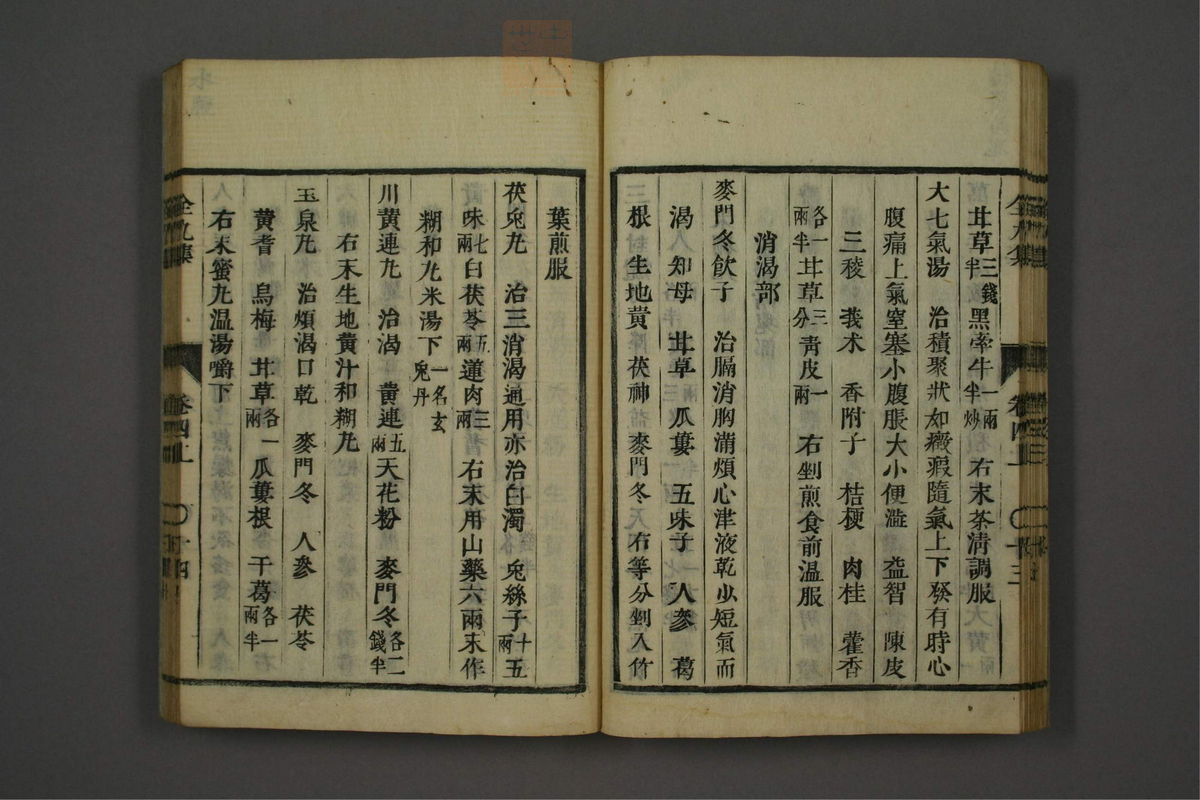 全九集　卷四上　十三
甘草三錢半　黑牽牛一兩半炒　右末茶清調服
大七氣湯　治積聚狀如癥瘕隨氣上下發有時心
腹痛上氣窒塞小腹脹大小便澁　益智　陳皮
三稜　莪朮　香附子　桔梗　肉桂　藿香
各一兩半　甘草三分　靑皮一兩　右剉煎食前温服
消渴部
麥門冬飲子　治膈消胸滿煩心津液乾少短氣而
渴　知母　甘草　瓜蔞　五味子　人參　葛
根　生地黃　茯神　麥門冬　右等分剉入竹
葉煎服
茯兎九　治三消渴通用亦治白濁　兎絲子十五兩
味七兩　白茯苓五兩　蓮肉三兩　右末用山藥六兩末作
糊和九米湯下　一名玄兎丹
川黃連九　治渴　黃連五兩　天花粉　麥門冬各二錢半
右末生地黃汁和糊九
玉泉九　治煩渴口乾　麥門冬　人參　茯苓
黃耆　烏梅　甘草各一兩　瓜蔞根　干葛各一兩半
右末蜜九温湯嚼下
全九集　卷四上　十四